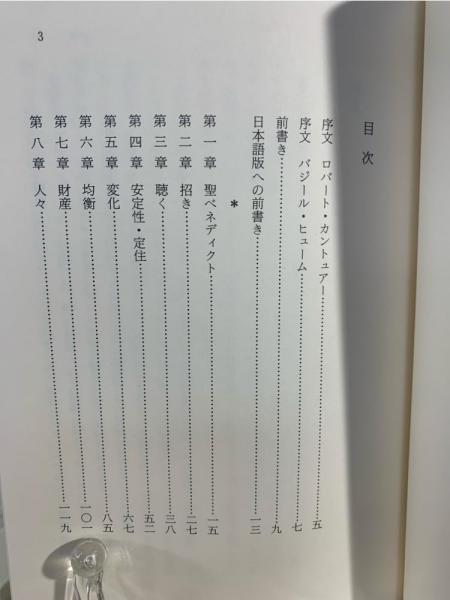 目次
序文 ロバート・カントュアー……五
序文 バジール・ヒューム……七
前書き……九
日本語版への前書き……一三
*
第一章 聖ベネディクト……一五
第二章 招き……二七
第三章 聴く……三八
第四章 安定性・定住……五二
第五章 変化……六七
第六章 均衡……八五
第七章 財産……一〇一
第八章 人々……一一九
3